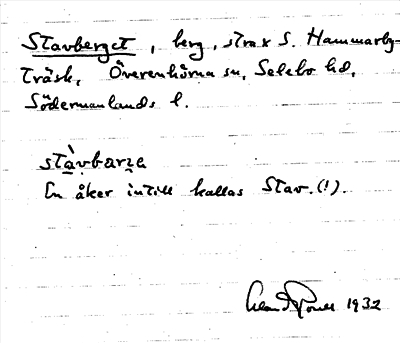 Stavberget, berg, strax S. Hammarby-
träsk, Överenhörna sn, Selebo hd,
Södermanlands l.
stàvbarʒe
En åker intill kallas Stav.(!).
1932